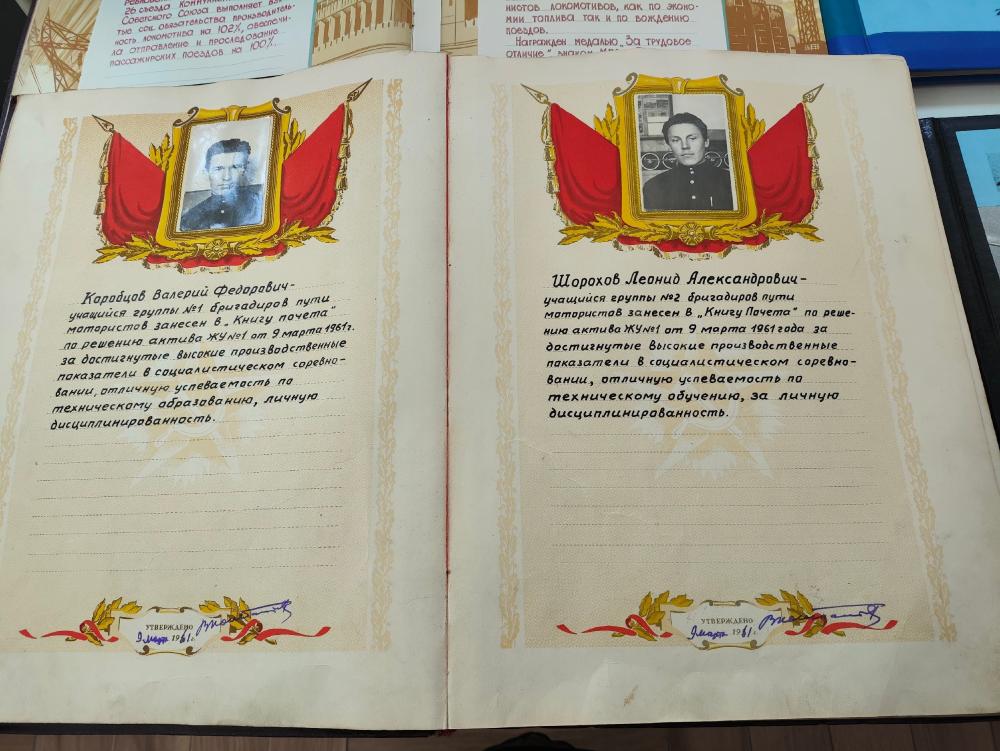 26 съезда
Советского Союза выполняет взя-
тые соц. обязательства производитель-
ность локомотива на 102%, обеспечи-
ла отправление и проследование
пассажирских поездов на 100%.
нистов локомотивов, как по эконо-
мии топлива так и по вождению
поездов.
Награжден медалью „За трудовое
отличие"
Коробцов Валерий Федорович-
учащийся группы №1 бригадиров пути
мотористов занесен в „Книгу почета"
по решению актива ЖУ №1 от 9 марта 1961г.
за достигнутые высокие производственные
показатели в социалистическом соревно-
вании, отличную успеваемость по
техническому образованию, личную
дисциплинированность.
УТВЕРЖДЕНО
9 марта 1961 г.
Шорохов Леонид Александрович-
учащийся группы №2 бригадиров пути
мотористов занесен в „Книгу Почета" по реше-
нию актива ЖУ №1 от 9 марта 1961 года за
достигнутые высокие производственные
показатели в социалистическом соревно-
вании, отличную успеваемость по
техническому обучению, за личную
дисциплинированность.
УТВЕРЖДЕНО
9 марта 1961 г.